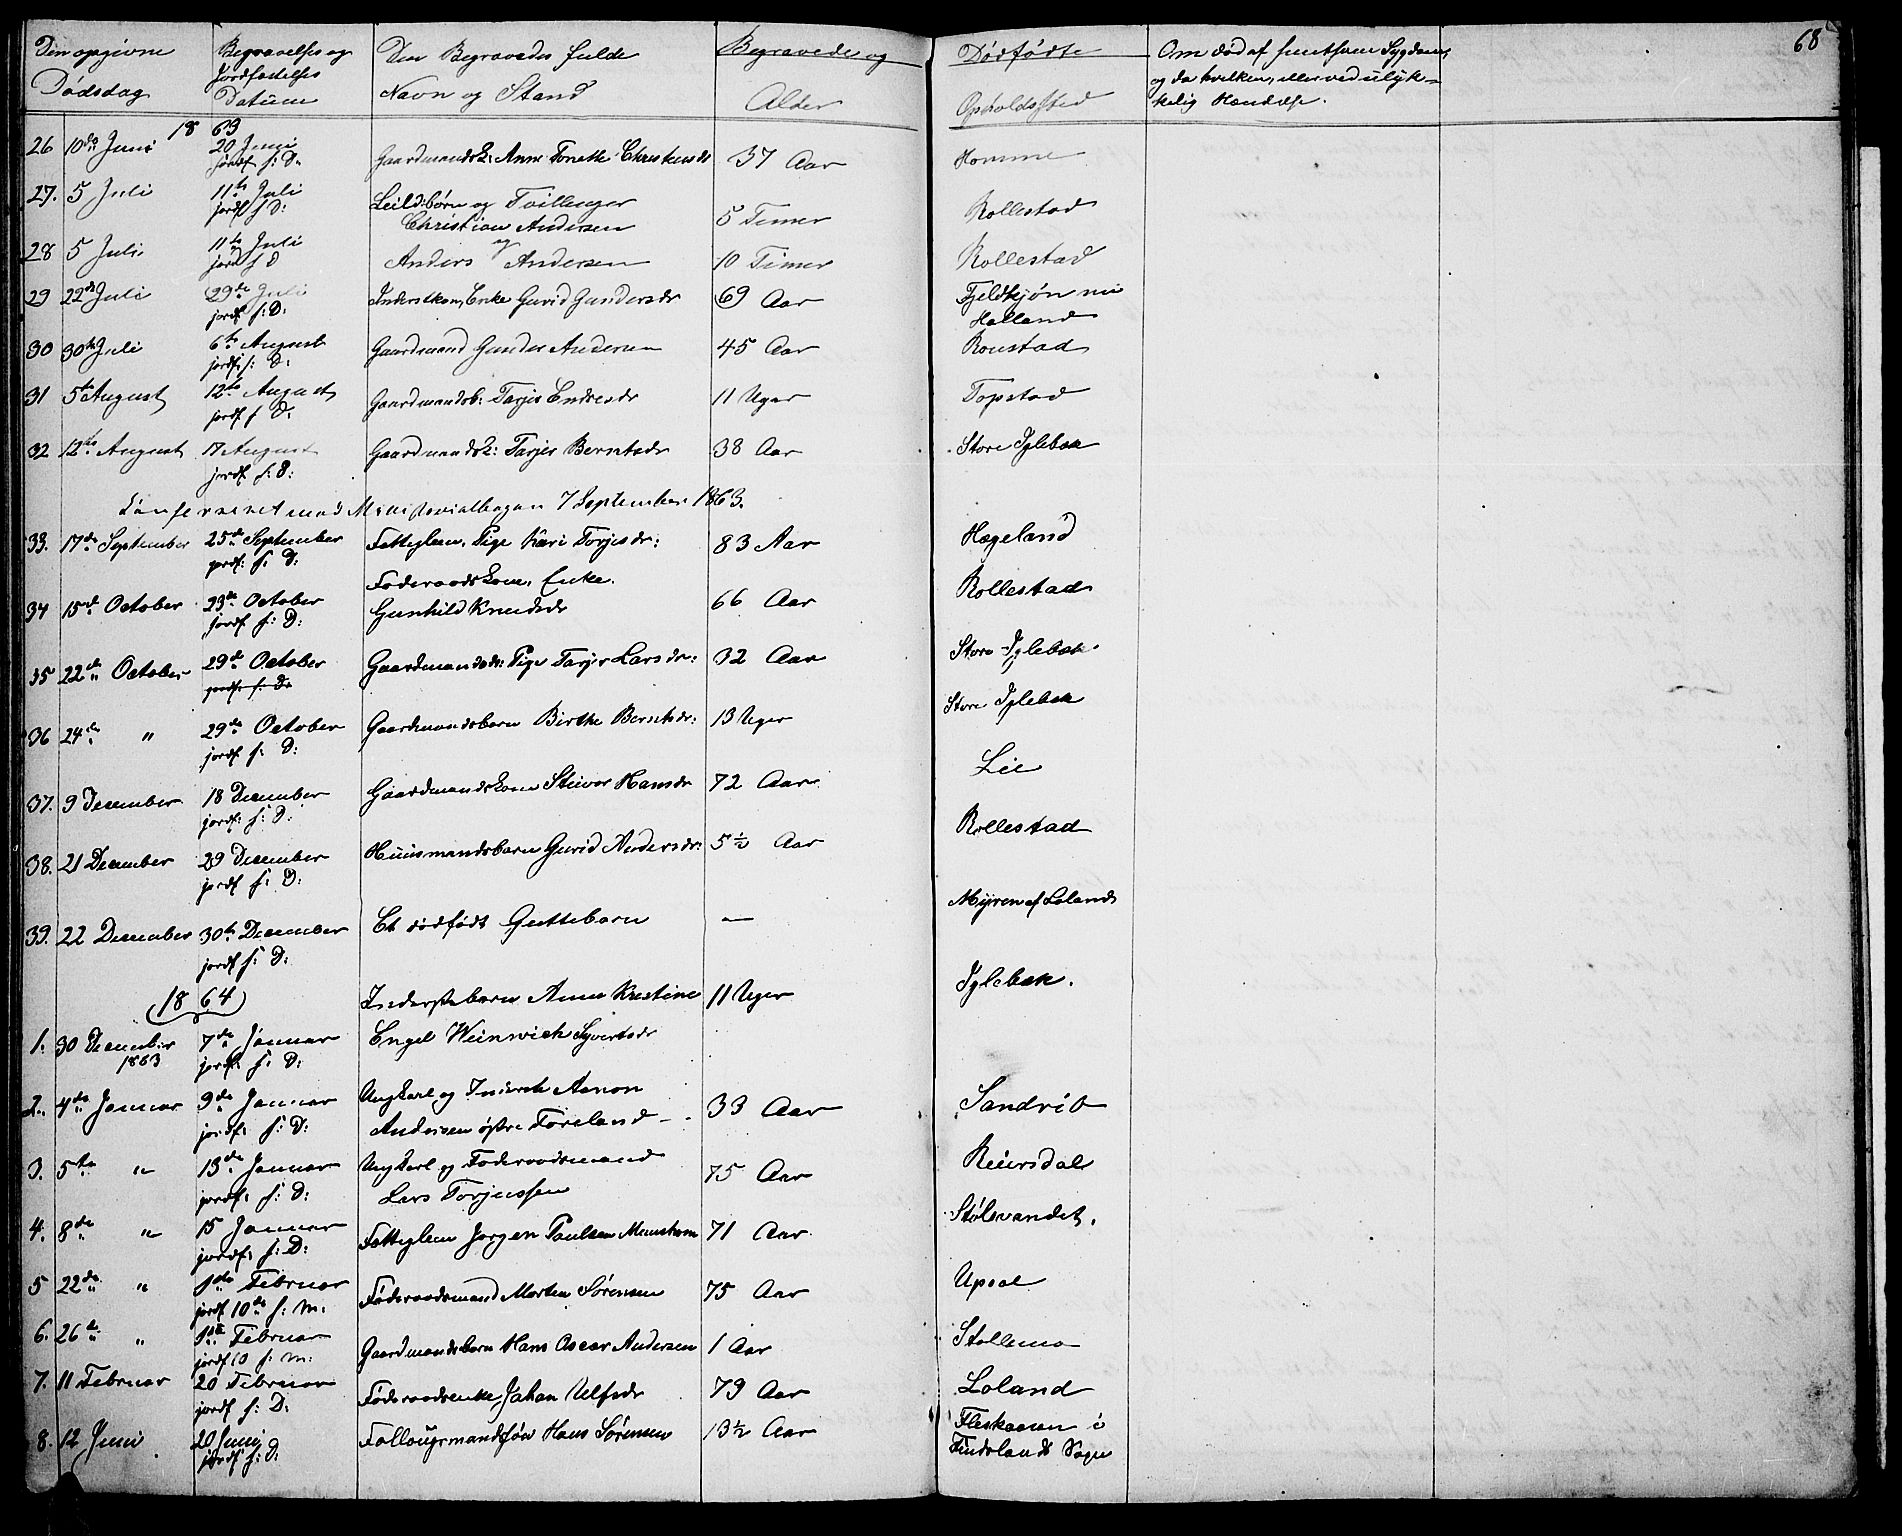 68
Den opgivne Dødsdag | Begravelses og Jordfæstelses Datum | Den Begravedes fulde Navn og Stand | Begravede og Alder | Dødfødte Opholdssted | Om død af smitsom Sygdom, og da hvilken, eller ved ulyk-
kelig Hændelse.
1863
26 10de Juni | 20 Juni | Gaardmandsk: Anne Tonette Christensdr | 37 Aar | Homme
jordf f: D:
27. 5 Juli | 11te Juli | børn og Tvillinger
jordf f D: | Christian Andersen | 5 Timer | Rollestad
og
28 5 Juli | 11te Juli | Anders Andersen | 10 Timer | Rollestad
jord f D
29 22de Juli | 29de Juli | Inderstkon, Enke Gurid Gundersdr | 69 Aar | Fjeldkjøn
jordf f: D: | Holland
30 30te Juli | 6te August | Gaardmand Gunder Andersen | 45 Aar | Roustad
jordf f: D:
31 5te August | 12te August | Gaardmandsb: Tarjer Endresdr | 11 Uger | Topstad
jordf f D:
32 12te August | 17 August | Gaardmandsk: Tarjer Berntsdr | 38 Aar | Store Iglebæk
jordf f:
Confereret med Ministerialbogen 7 September 1863.
33. 17de September | 25de September | Fattiglem, Pige Kari Torjesdr: | 83 Aar | Hægeland
jordf: f: D:
Føderaadskone, Enke.
34 15de October | 23de October | Gunhild Knudsdr | 66 Aar | Rollestad
jordf f: D:
35 22de October | 29de October | Gaardmandsdr: Pige Tarjer Larsdr: | 32 Aar | Store Iglebæk.
jordf: f: D:
36 24de " | 29de October | Gaardmandsbarn Birthe Berntsdr: | 13 Uger | Store Iglebæk
jordf f: D:
37. 9 December | 18 December | Gaardmandskone Stuvor Hansdr | 72 Aar | Lie
jordf: f: D:
38. 21 December | 29 December | Huusmandsbarn Gurid Andersdr: | 5½ Aar | Rollestad
jordf f: D:
39. 22 December | 30te December | Et dødfødt Guttebarn | — | Myren af Loland
jordf f: D:
1864 | Inderstebarn Anne Kristine | 11 Uger | Iglebæk.
1. 30 December | 7de Januar | Engel Weinwich Syvertsdr
1863 | jordf: f: D:
2. 4de Januar | 9de Januar | Ungkarl og Inderste Aanon
jordf: f: D: | Andersen østre Føreland — | 33 Aar | Sandrib
3. 5te " | 13de Januar | Ungkarl og Føderaadsmand
jordf: f: D: | Lars Torjussen | 75 Aar | Reiersdal
4. 8de " | 15 Januar | Fattiglem Jørgen Paulsen | 71 Aar | Stølevandet.
jordf: f: D:
5 22de " | 1ste Februar | Føderaadsmand Morten Sørensen | 75 Aar | Upsal
jordf 10de f: M:
6. 26de " | 1ste Februar | Gaardmandsbarn Hans Oscar Andersen | 1 Aar | Stallemo
jordf 10 f: M:
7. 11 Februar | 20 Februar | Føderaadsenke, Johan Ulfsdr | 79 Aar | Loland
jordf f: D:
8. 12 Juni | 20 Juni | Hans Sørensen | 13½ Aar | Fleskaasen i
jordf f: D: | Findslands Sogn